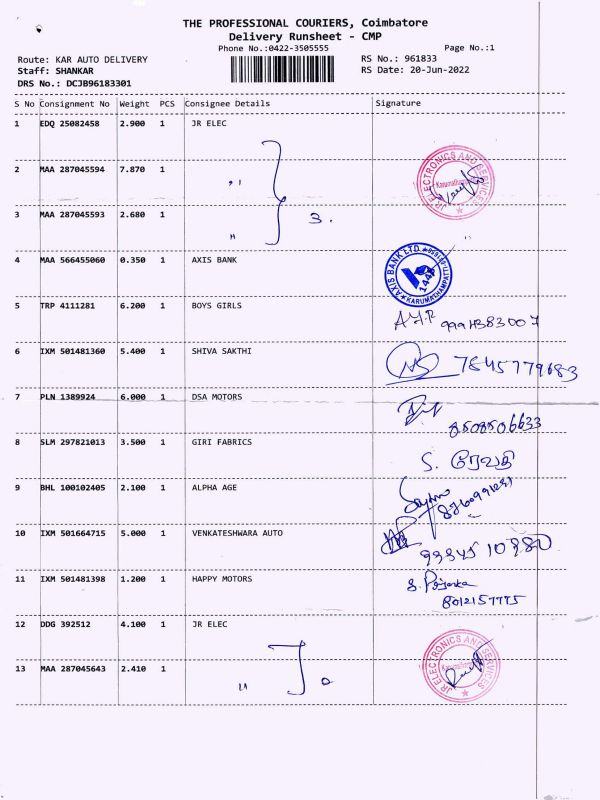 THE PROFESSIONAL COURIERS, Coimbatore
Delivery Runsheet - CMP
Phone No.:0422-3505555 Page No.:1
Route: KAR AUTO DELIVERY RS No.: 961833
Staff: SHANKAR RS Date: 20-Jun-2022
DRS No.: DCJB96183301
S No Consignment No Weight PCS Consignee Details Signature
1 EDQ 25082458 2.900 1 JR ELEC
2 MAA 287045594 7.870 1 "
JR ELECTRONICS AND SERVICES
3 MAA 287045593 2.680 1 " 3.
4 MAA 566455060 0.350 1 AXIS BANK
AXIS BANK LTD. 1448 KARUMATHAMPATTI
5 TRP 4111281 6.200 1 BOYS GIRLS
6 IXM 501481360 5.400 1 SHIVA SAKTHI
7845779683
7 PLN 1389924 6.000 1 DSA MOTORS
8508506633
8 SLM 297821013 3.500 1 GIRI FABRICS
S. ரேவதி
9 BHL 100102405 2.100 1 ALPHA AGE
10 IXM 501664715 5.000 1 VENKATESHWARA AUTO
11 IXM 501481398 1.200 1 HAPPY MOTORS
8012157775
12 DDG 392512 4.100 1 JR ELEC
13 MAA 287045643 2.410 1 "
JR ELECTRONICS AND SERVICES